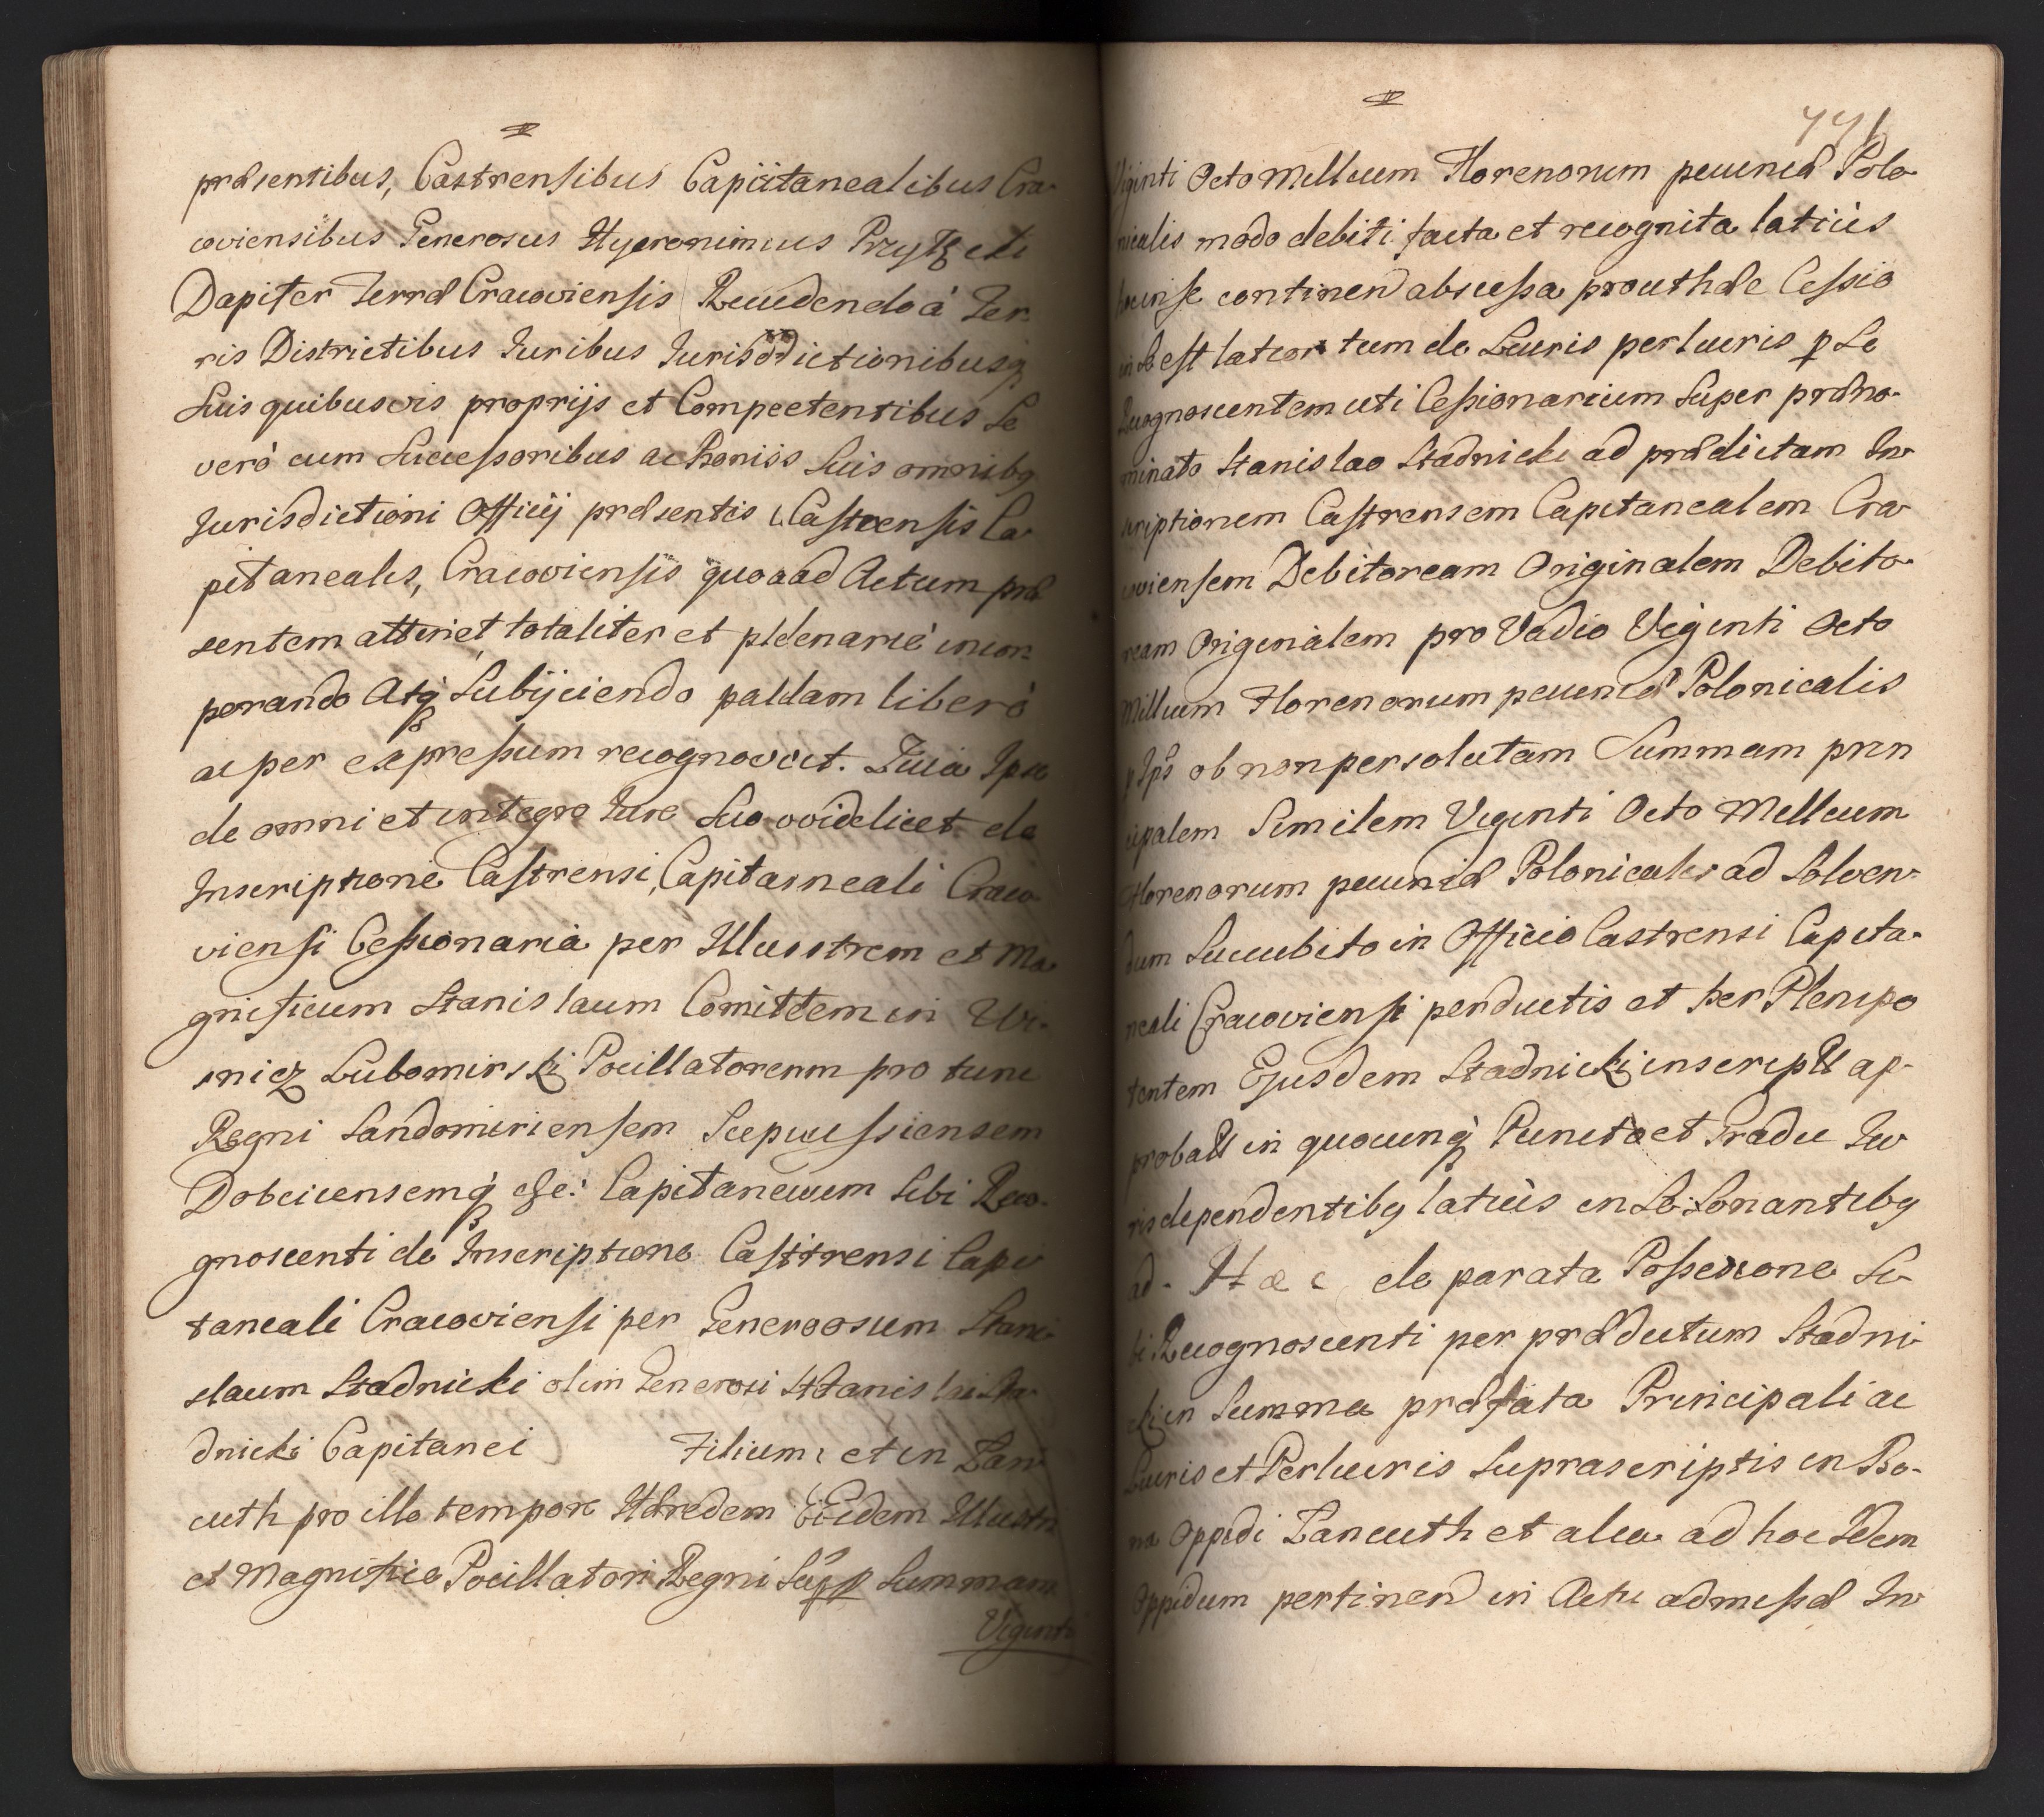 præsentibus, Castrensibus Capitanealibus Cra-
coviensibus Generosus Hyeronimus Przyłęcki
Dapifer Terræ Cracoviensis Recedendo à Ter-
ris Districtibus Juribus Jurisddictionibusq
Suis quibusvis proprijs et Competentibus Se
verò cum Successoribus ac Boniss Suis omnibq
Jurisdictioni Officij præsentis Castrensis Ca-
pitanealis, Cracoviensis quoad Actum præ
sentem attinet, totaliter et plenarie incor-
porando Atq Subijciendo palam liberò
ac per expressum recognovit. Quia Ipse
de omni et integro Jure Suo videlicet de
Inscriptione Castrensi, Capitaneali Craco-
viensi Cessionaria per Illusstrem et Ma
gnificum Stanislaum Comittem in Wi-
snicz Lubomirski Pocillatorem pro tunc
Regni Sandomiriensem Scepusiensem
Dobcicensemq etc: Capitaneum Sibi Reco-
gnoscenti de Inscriptione Casttrensi Capi
taneali Cracoviensi per Generoosum Stani-
slaum Stadnicki olim Generosi Sttanislai Sta-
dnicki Capitanei Filium, et in Łan-
cuth pro illo tempore Hæredem Eidem Illustri
et Magnifico Pocillatori Regni Supp Summam
Viginti
771
Viginti Octo Millium Florenorum pecuniæ Polo-
nicalis modo debiti facta et recognita latiùs
hocce in se continen abscessa prout hæc Cessio
in se est latior tum de Lucris perlucris p Se
Recognoscentem uti Cessionarium Super præno-
minato Stanislao Stadnicki ad prædictam In-
scriptionem Castrensem Capitanealem Cra-
coviensem Debitoream Originalem Debito-
ream Originalem pro Vadio Viginti Octo
Millium Florenorum pecuniæ Polonicalis
p Ips ob non persolutam Summam prin
cipalem Similem Viginti Octo Millium
Florenorum pecuniæ Polonicalis ad Solven-
dum Succubito in Officio Castrensi Capita-
neali Cracoviensi perductis et per Plenipo
tentem Ejusdem Stadnicki inscript ap-
probatt in quocunq Puncto et Gradu Ju-
ris dependentibq latiùs in Se Sonantibq
ad. Hæc de parata Possessione Si-
bi Recognoscenti per prædictum Stadni-
cki in Summa præfata Principali ac
Lucris et Perlucris Suprascriptis in Bo-
na Oppidi Łancuth et alia ad hoc Idem
Oppidum pertinen in Actu admissæ In-